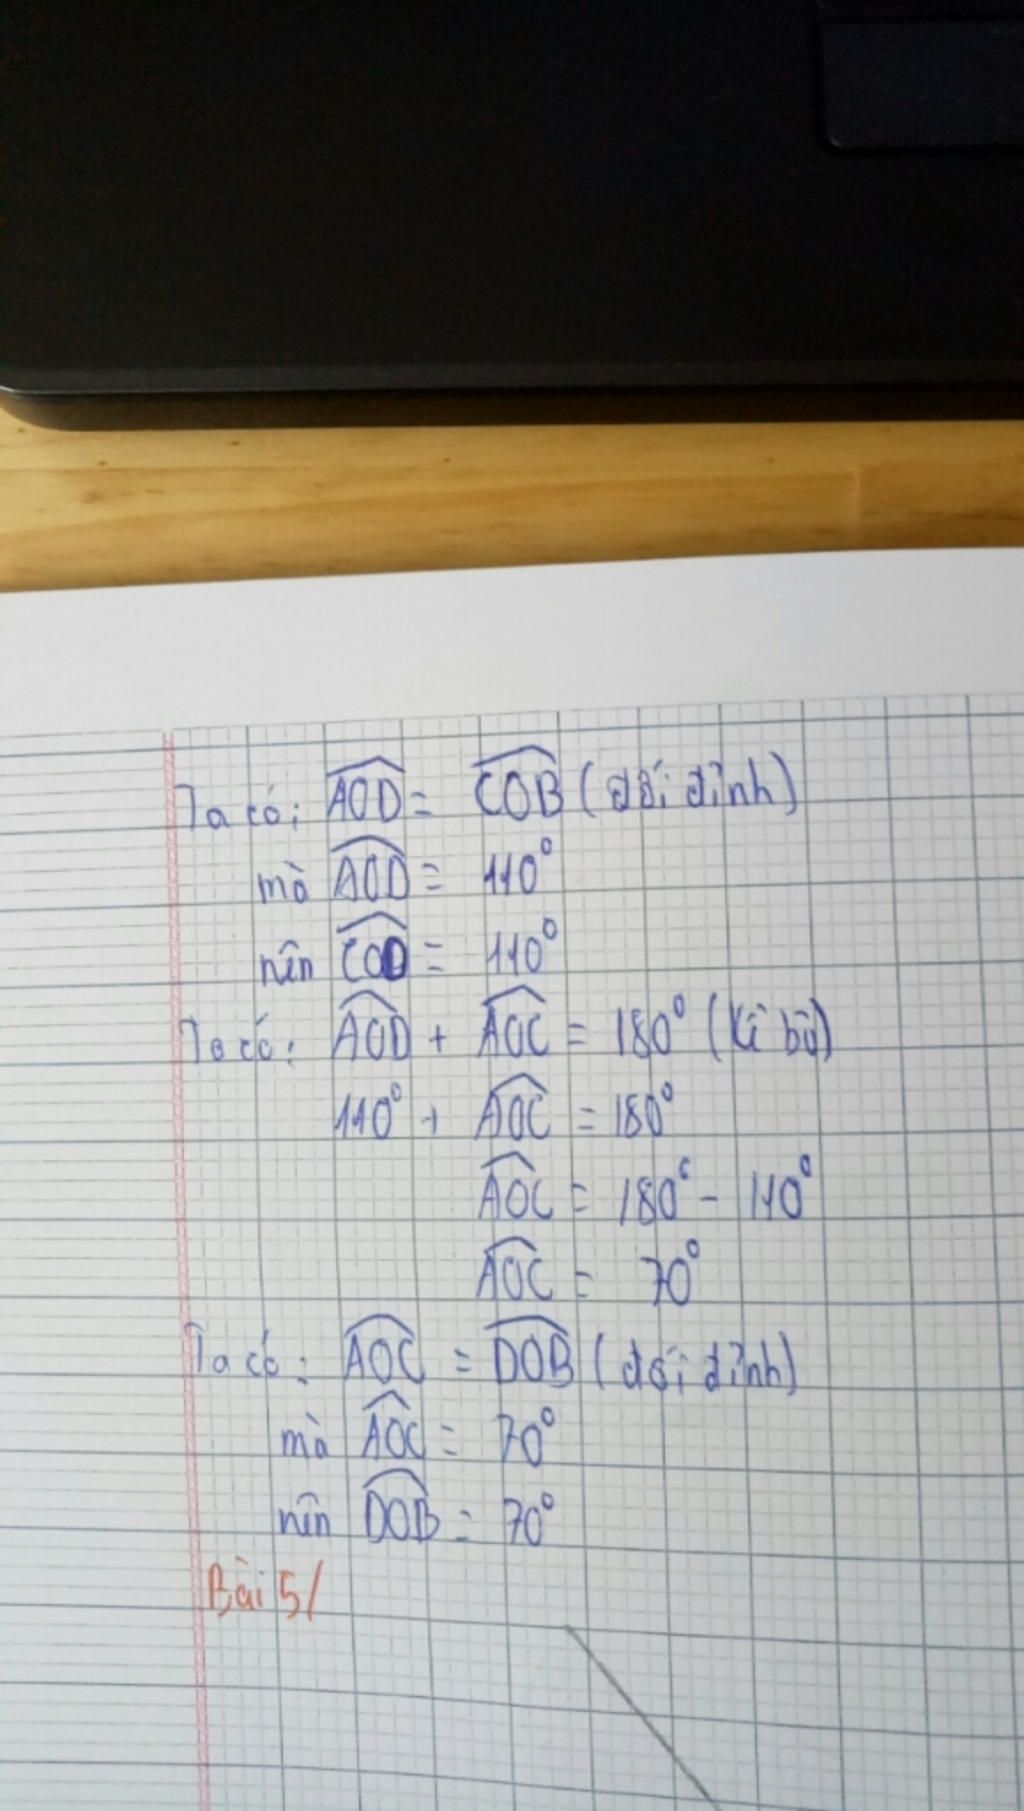 Ta có: AOD = COB (đối đỉnh)
mà AOD = 110°
nên COD = 110°
Ta có: AOD + AOC = 180° (kề bù)
110° + AOC = 180°
AOC = 180° - 110°
AOC = 70°
Ta có: AOC = DOB (đối đỉnh)
mà AOC = 70°
nên DOB = 70°
Bài 5/